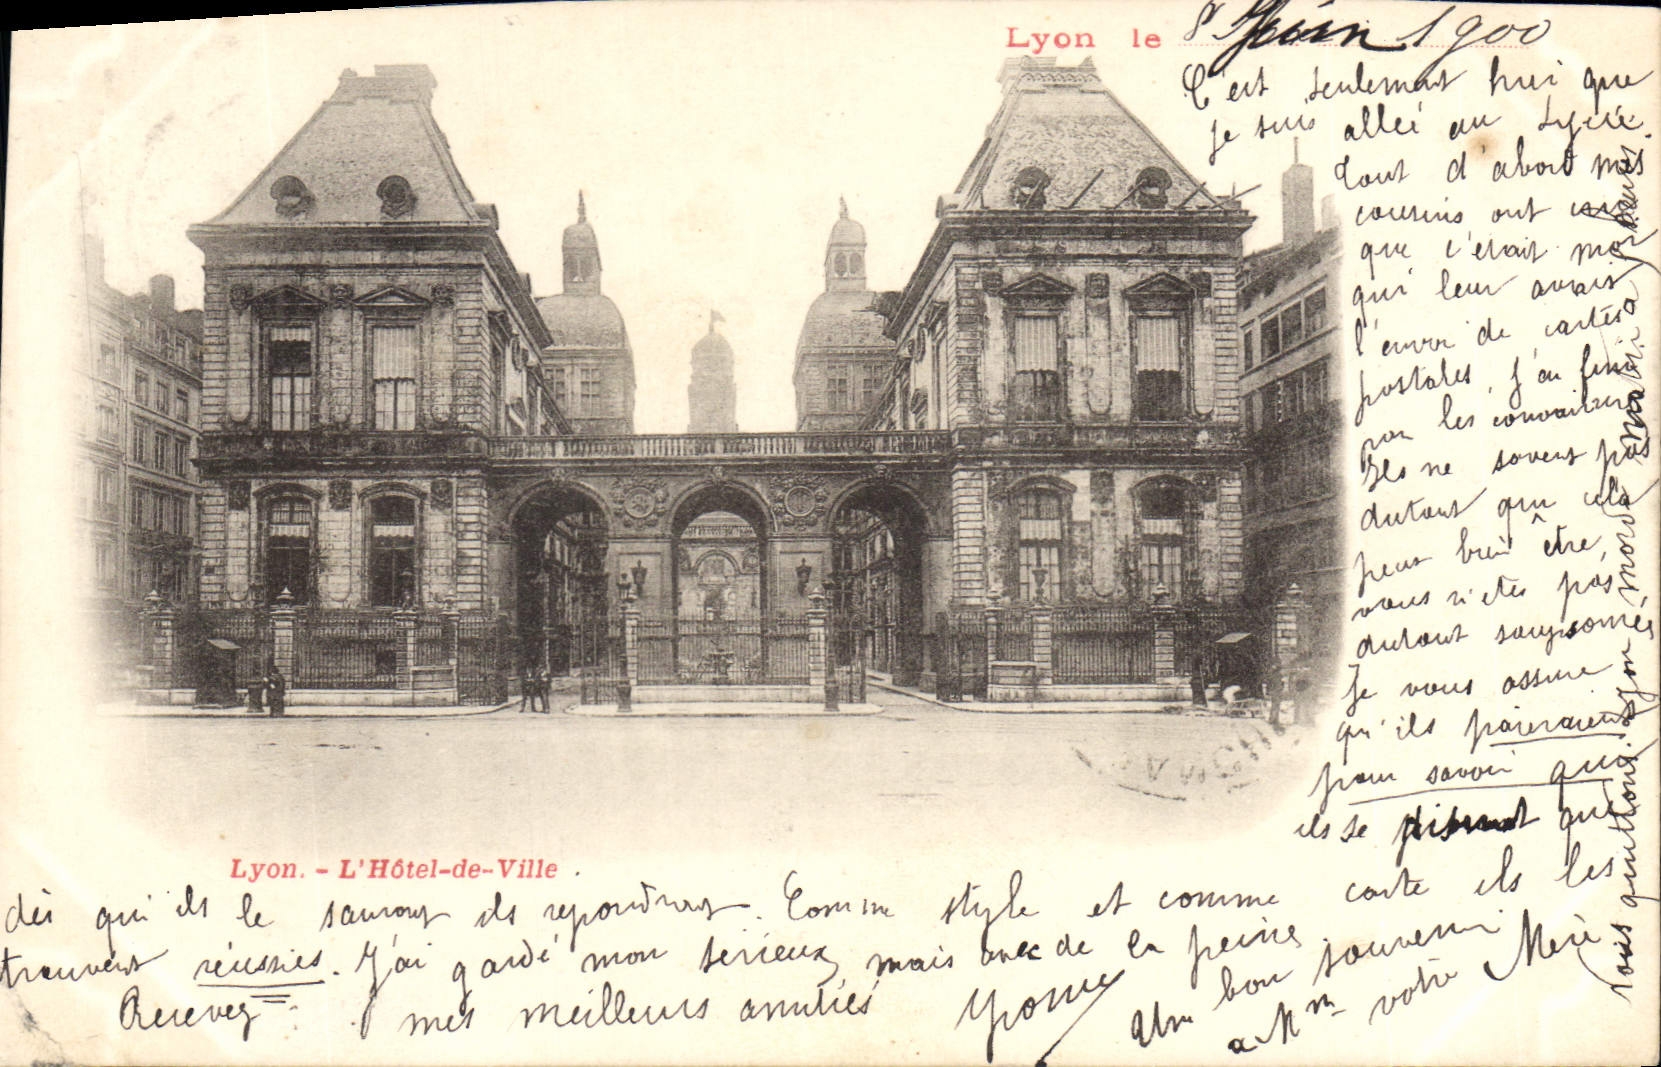 Lyon le 8 Juin 1900
C'est seulement hui que
je suis allée au Lycée.
Tout d'abord mes
cousins ont cru
que c'était moi
qui leur avais
l'envoi de cartes
postales, j'ai fini
par les convaincre
Ils ne savent pas
autant que cela
peut bien être,
vous n'êtes pas
autant soupçonnés
Je vous assure
qu'ils paieraient
pour savoir qui
ils se disent que
Lyon. - L'Hôtel-de-Ville
dès qu'ils le sauront ils répondront. Comme style et comme carte ils les
trouvent réussies. J'ai gardé mon sérieux, mais avec de la peine.
Recevez mes meilleurs amitiés Yvonne
Un bon souvenir
a Mme votre Mère
vous quittons Lyon mardi matin a heures